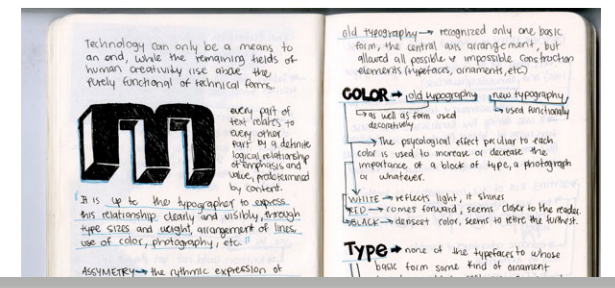 Technology can only be a means to
an end, while the remaining fields of
human creativity rise above the
purely functional of technical forms.
m
every part of
text relates to
every other
part by a definite
logical relationship
of emphasis and
value, predetermined
by content.
"It is up to the typographer to express
this relationship clearly and visibly, through
type sizes and weight, arrangement of lines,
use of color, photography, etc."
ASSYMETRY → the rythmic expression of
old typography → recognized only one basic
form, the central axis arrangement, but
allowed all possible & impossible construction
elements (typefaces, ornaments, etc)
COLOR → old typography new typography
as well as form used
decoratively
used functionally
The psycological effect peculiar to each
color is used to increase or decrease the
importance of a block of type, a photograph
or whatever.
WHITE → reflects light, it shines
RED → comes forward, seems closer to the reader.
BLACK → densest color, seems to retire the furthest.
TYPE → none of the typefaces to whose
basic form some kind of ornament